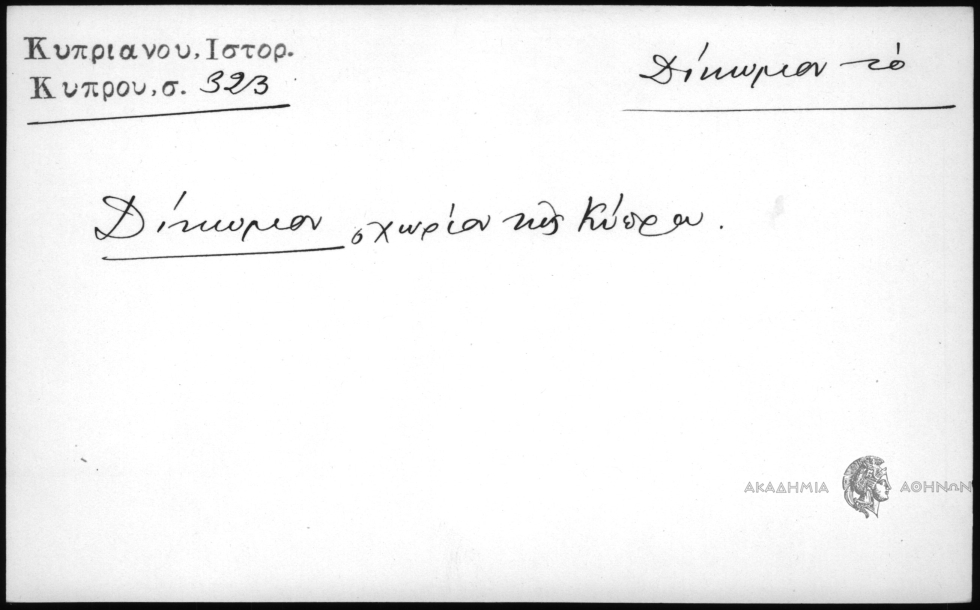 Κυπριανου, Ιστορ.
Κυπρου, σ. 323
Δίκωμον τὸ
Δίκωμον χωρίον τῆς Κύπρου.
ΑΚΑΔΗΜΙΑ ΑΘΗΝΩΝ